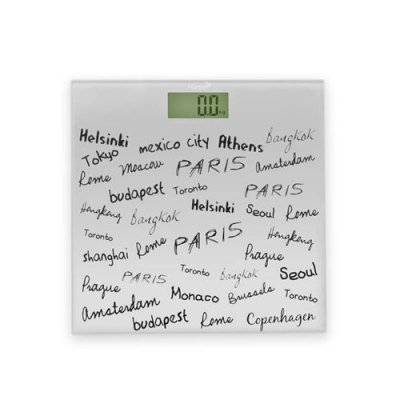 0.0
Helsinki mexico city Athens Bangkok
Tokyo Moscow PARIS Amsterdam
Rome
budapest Toronto PARIS
Hongkong Bangkok Helsinki Seoul Rome
Toronto PARIS Hongkong
shanghai Rome Prague
Prague PARIS Toronto Bangkok Seoul
Amsterdam Monaco Brussels Toronto
budapest Rome Copenhagen